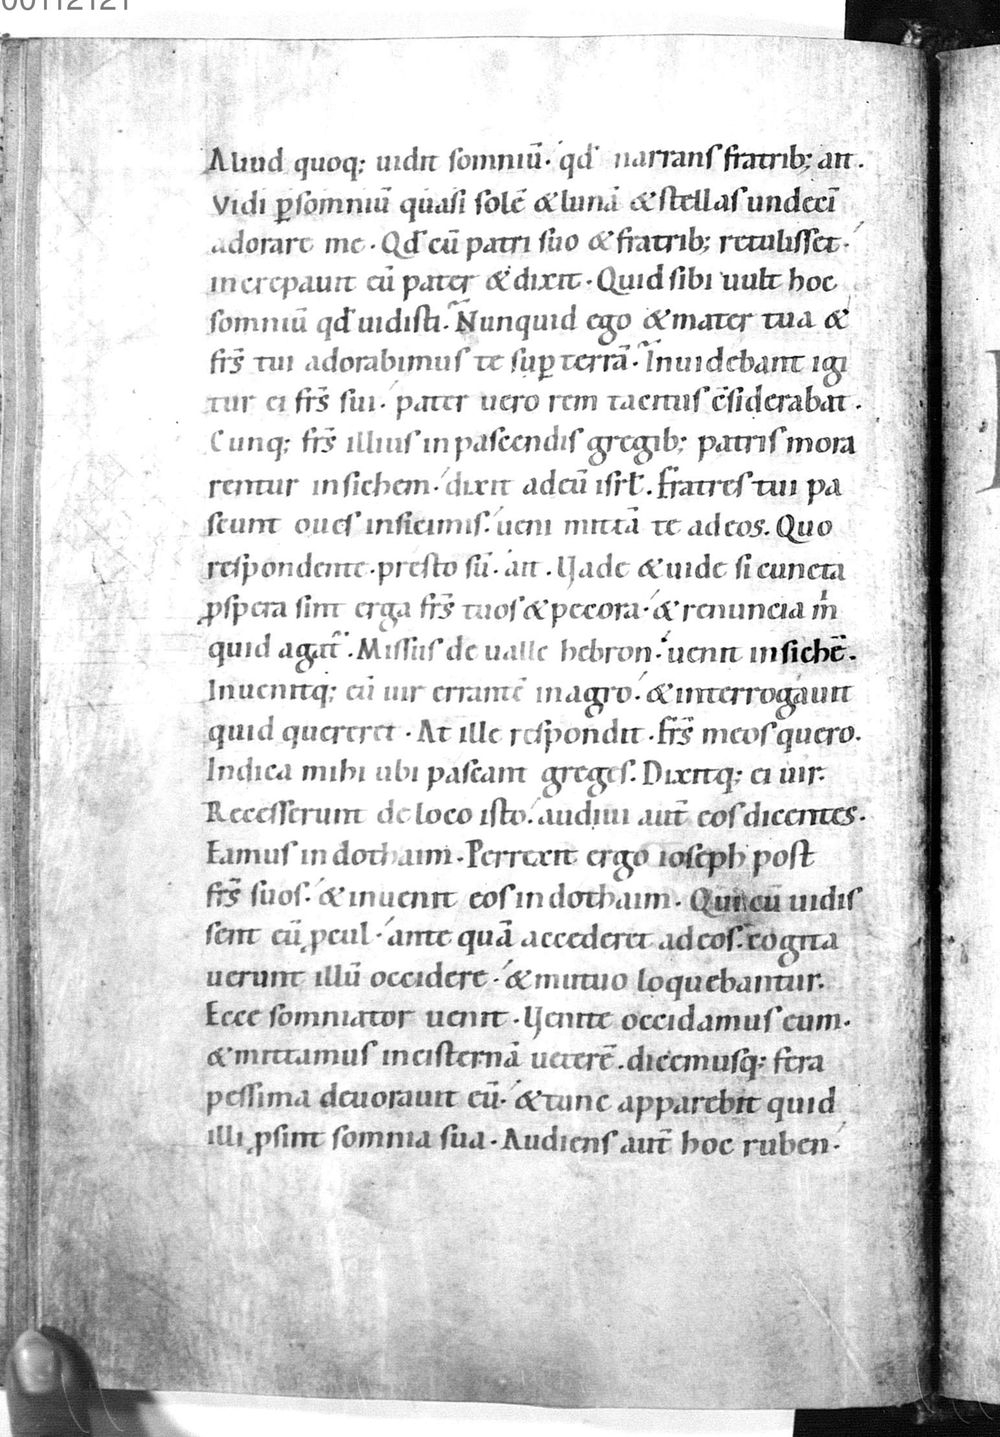 00112121
Aliud quoq; uidit somniū· qđ narrans fratrib; ait.
Vidi ꝑ somniū quasi solē & lunā & stellas undeci̅
adorare me· Qđ cū patri suo & fratrib; retulisset·
increpauit eū pater & dixit· Quid sibi uult hoc
somniū qđ uidisti· Nunquid ego & mater tua &
frs̅ tui adorabimus te suꝑ terrā· Inuidebant igi
tur ei frs̅ sui· pater uero rem tacitus c̅siderabat.
Cunq; frs̅ illius in pascendis gregib; patris mora
rentur in sichem· dixit ad eū isrl̅. fratres tui pa
scunt oues in sicimis· ueni mittā te ad eos. Quo
respondente· presto sū· ait. Uade & uide si cuncta
ꝓspera sint erga frs̅ tuos & pecora· & renuncia m̅
quid agat̅. Missus de ualle hebron· uenit in sichē.
Inuenitq; eū uir errantē in agro· & interrogauit
quid quereret· At ille respondit· frs̅ meos quero.
Indica mihi ubi pascant greges. Dixitq; ei uir·
Recesserunt de loco isto· audiui aut̅ eos dicentes.
Eamus in dothaim· Perrexit ergo ioseph post
frs̅ suos· & inuenit eos in dothaim· Qui cū uidis
sent eū ꝓcul· ante quā accederet ad eos· cogita
uerunt illū occidere· & mutuo loquebantur.
Ecce somniator uenit· Uenite occidamus eum·
& mittamus in cisternā ueterē. dicemusq; fera
pessima deuorauit eū· & tunc apparebit quid
illi ꝓsint somnia sua· Audiens aut̅ hoc ruben·